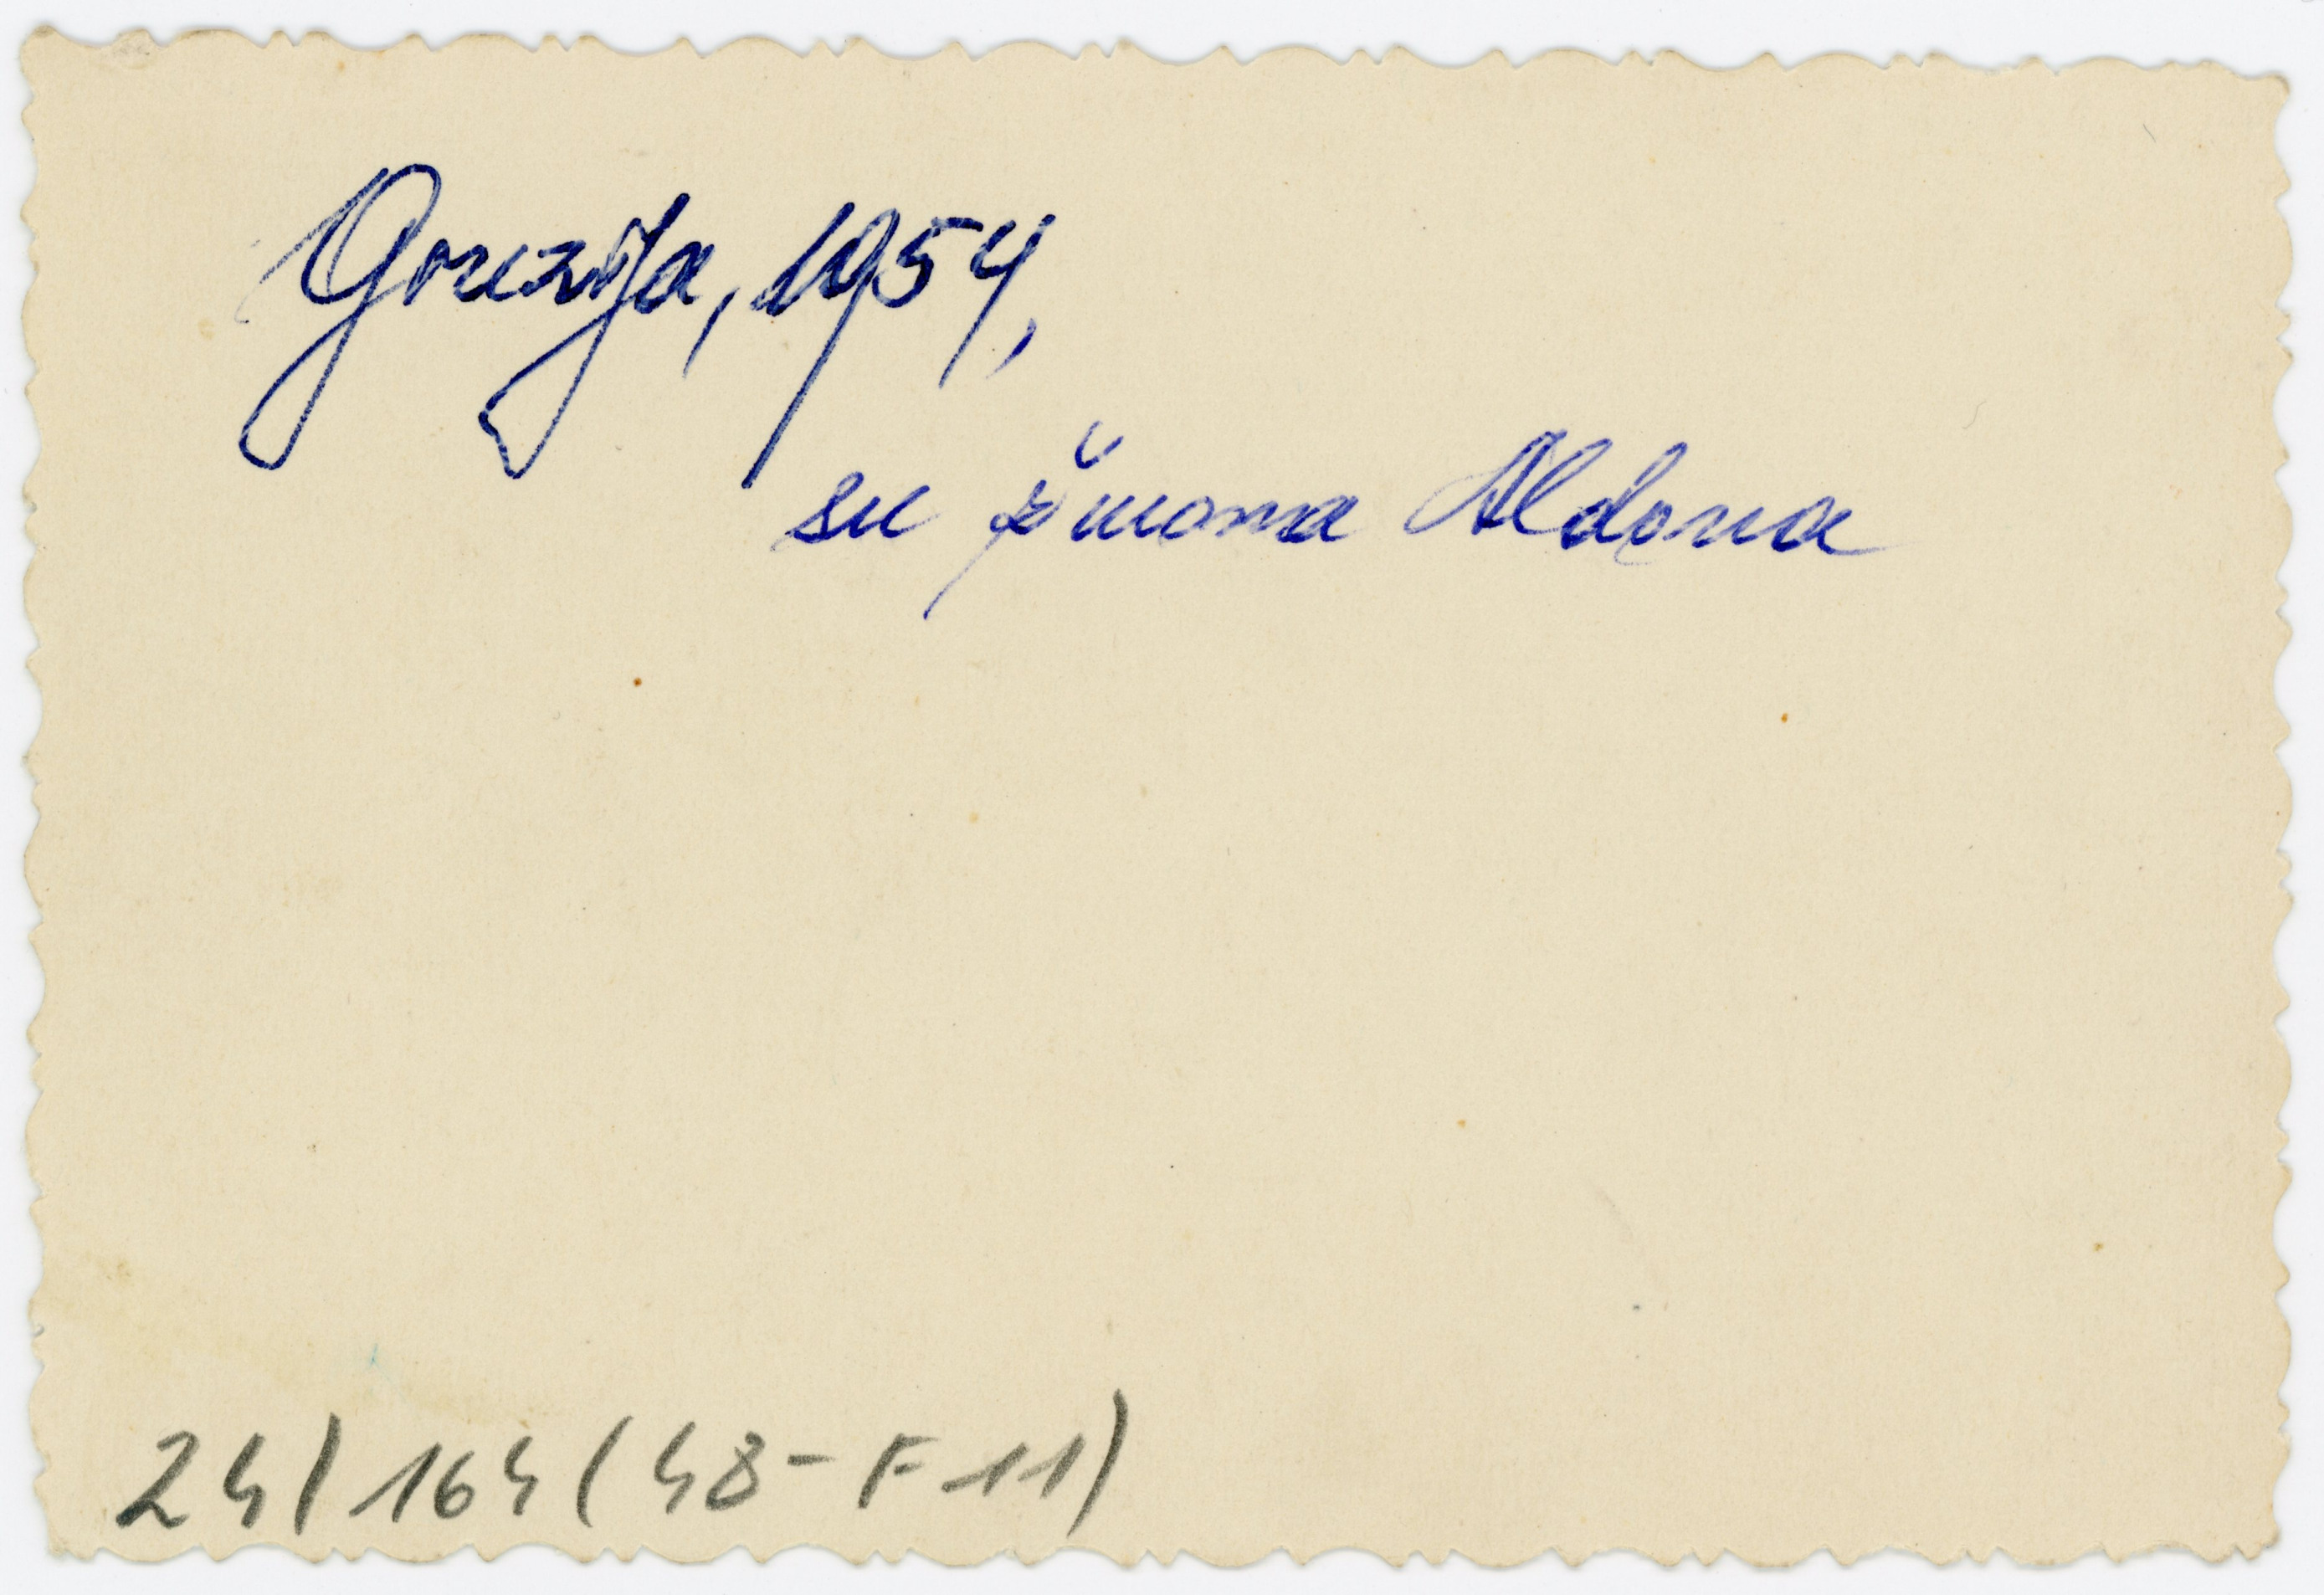 Gruzija, 1954,
su žmona Aldona
24/164 (48-F11)